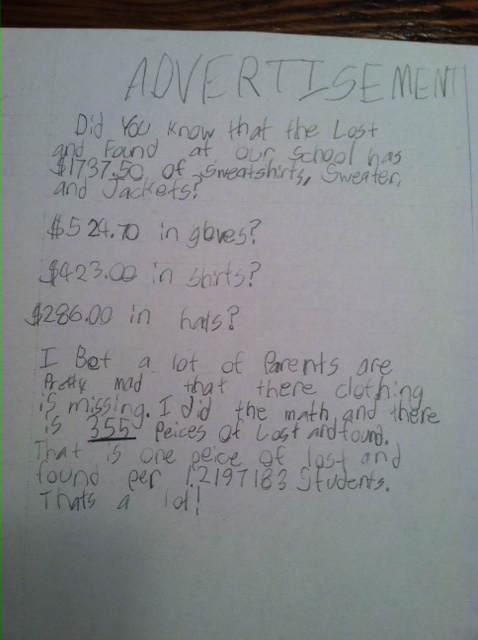 ADVERTISEMENT
Did You Know that the Lost
and Found at our School has
$1737.50 of Sweatshirts, Sweater,
and Jackets?
$524.70 in gloves?
$423.00 in shirts?
$286.00 in hats?
I Bet a lot of Parents are
Pretty mad that there clothing
is missing. I did the math, and there
is 355 Peices of Lost and found.
That is one peice of lost and
found per 1.2197183 Students.
Thats a lot!